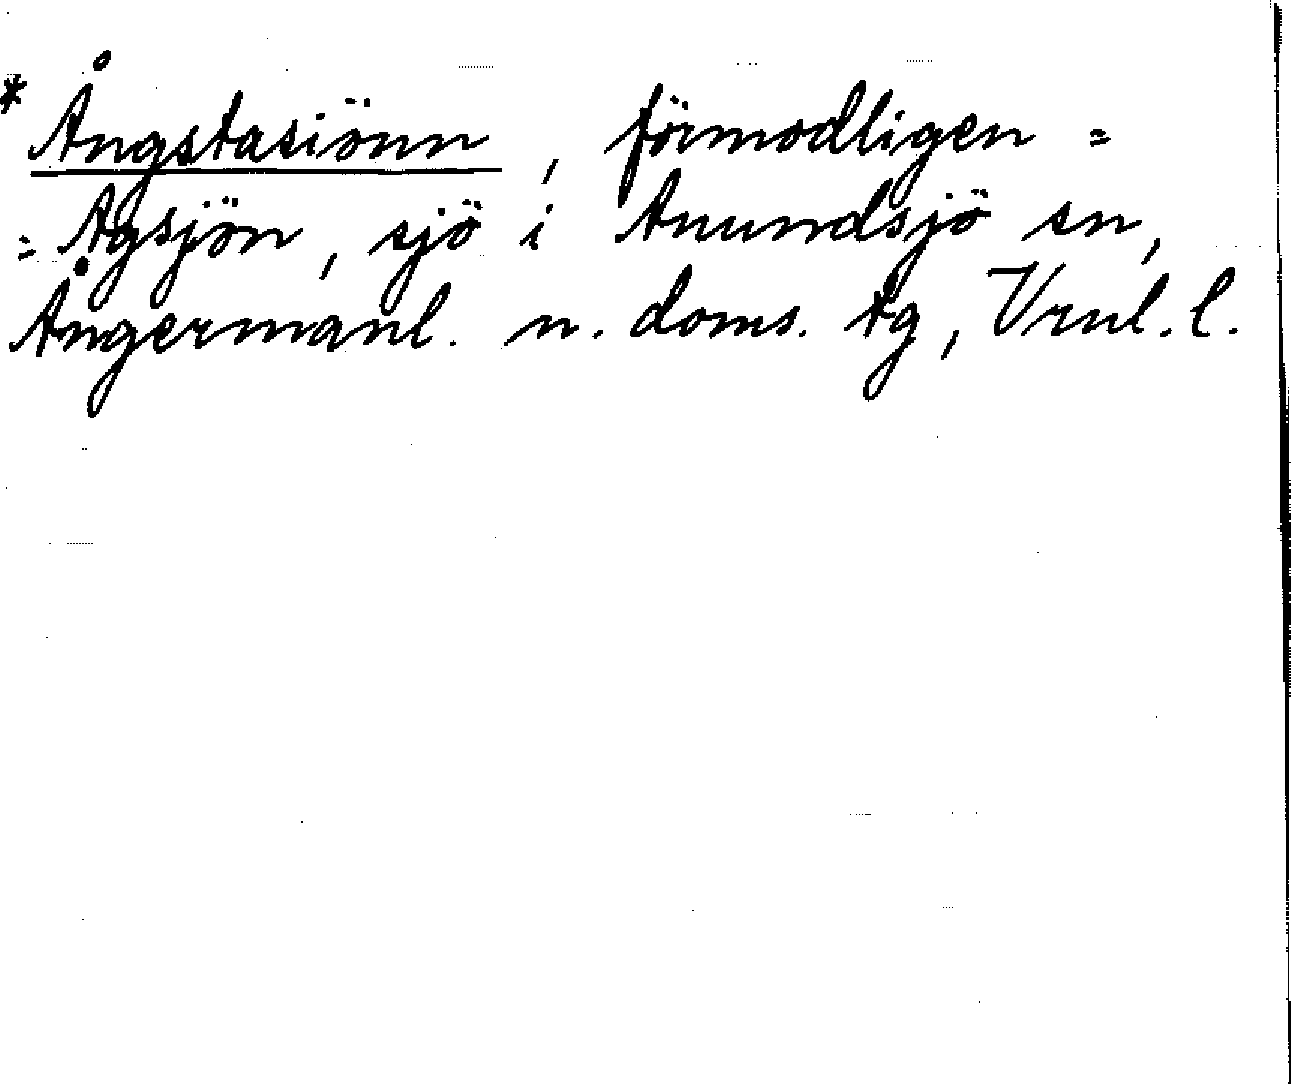 * Ångstasiönn, förmodligen =
= Agsjön, sjö i Anundsjö sn,
Ångermanl. n. doms. tg, Vrnl. l.